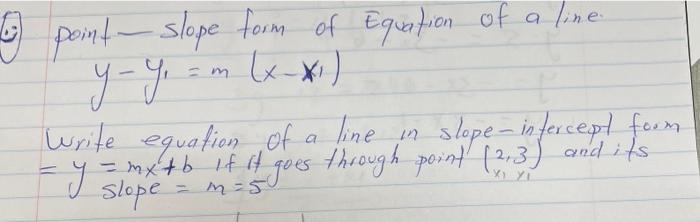 point — slope form of Equation of a line.
y - y₁ = m (x - x₁)
Write equation of a line in slope - intercept form
= y = mx + b if it goes through point (2,3) and its
x₁ y₁
slope = m = 5